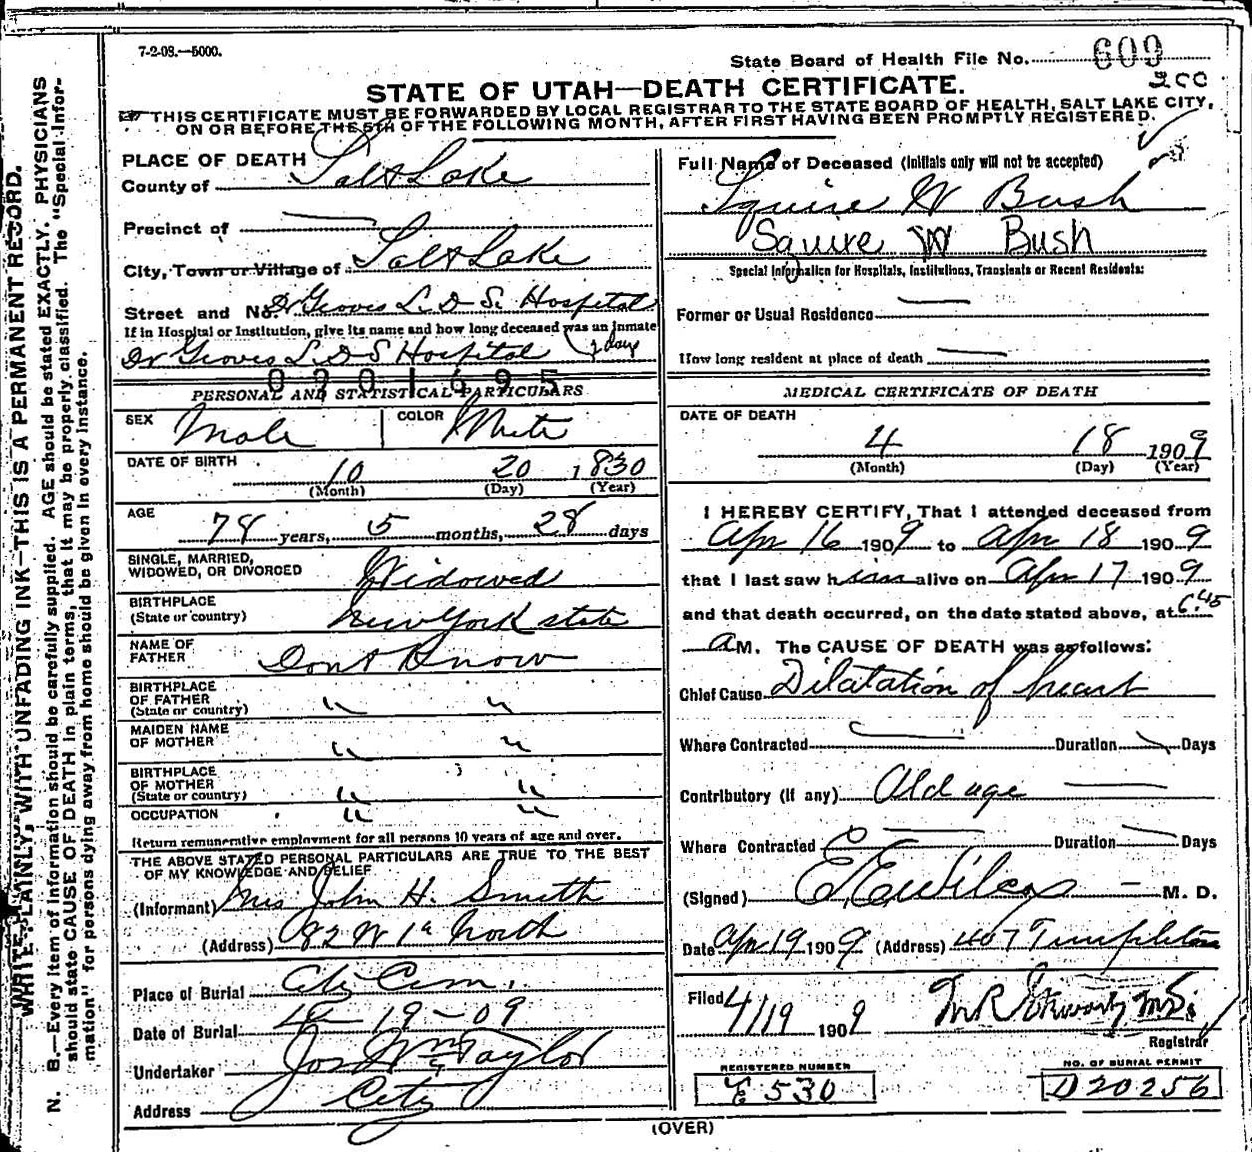 7-2-08.—5000.
State Board of Health File No. 609
200
STATE OF UTAH—DEATH CERTIFICATE.
THIS CERTIFICATE MUST BE FORWARDED BY LOCAL REGISTRAR TO THE STATE BOARD OF HEALTH, SALT LAKE CITY,
ON OR BEFORE THE 5TH OF THE FOLLOWING MONTH, AFTER FIRST HAVING BEEN PROMPTLY REGISTERED.
WRITE PLAINLY, WITH UNFADING INK—THIS IS A PERMANENT RECORD.
N. B.—Every item of information should be carefully supplied. AGE should be stated EXACTLY. PHYSICIANS
should state CAUSE OF DEATH in plain terms, that it may be properly classified. The "Special Infor-
mation" for persons dying away from home should be given in every instance.
PLACE OF DEATH
County of Salt Lake
Precinct of
City, Town or Village of Salt Lake
Street and No. Dr Groves L. D. S. Hospital
If in Hospital or Institution, give its name and how long deceased was an inmate
Dr Groves L D S Hospital (2 days
0901695
PERSONAL AND STATISTICAL PARTICULARS
SEX Male COLOR White
DATE OF BIRTH 10 20 1830
(Month) (Day) (Year)
AGE
78 years, 5 months, 28 days
SINGLE, MARRIED,
WIDOWED, OR DIVORCED Widowed
BIRTHPLACE
(State or country) New York state
NAME OF
FATHER Dont Know
BIRTHPLACE
OF FATHER
(State or country) " "
MAIDEN NAME
OF MOTHER " "
BIRTHPLACE
OF MOTHER
(State or country) " "
OCCUPATION " "
Return remunerative employment for all persons 10 years of age and over.
THE ABOVE STATED PERSONAL PARTICULARS ARE TRUE TO THE BEST
OF MY KNOWLEDGE AND BELIEF
(Informant) Mrs John H. Smith
(Address) 82 W 1st North
Place of Burial City Cem.
Date of Burial 4-19-09
Undertaker Jos Wm Taylor
Address City
Full Name of Deceased (Initials only will not be accepted)
Squire W Bush
Squire W Bush
Special Information for Hospitals, Institutions, Transients or Recent Residents:
Former or Usual Residence
How long resident at place of death
MEDICAL CERTIFICATE OF DEATH
DATE OF DEATH
4 18 1909
(Month) (Day) (Year)
I HEREBY CERTIFY, That I attended deceased from
Apr 16 1909 to Apr 18 1909
that I last saw him alive on Apr 17 1909
and that death occurred, on the date stated above, at 6.45
AM. The CAUSE OF DEATH was as follows:
Chief Cause Dilatation of heart
Where Contracted Duration Days
Contributory (If any) Old age
Where Contracted Duration Days
(Signed) E. E. Wilcox M. D.
Date Apr 19 1909 (Address) 407 Templeton
Filed 4/19 1909
Registrar
REGISTERED NUMBER
E 530
NO. OF BURIAL PERMIT
D20256
(OVER)